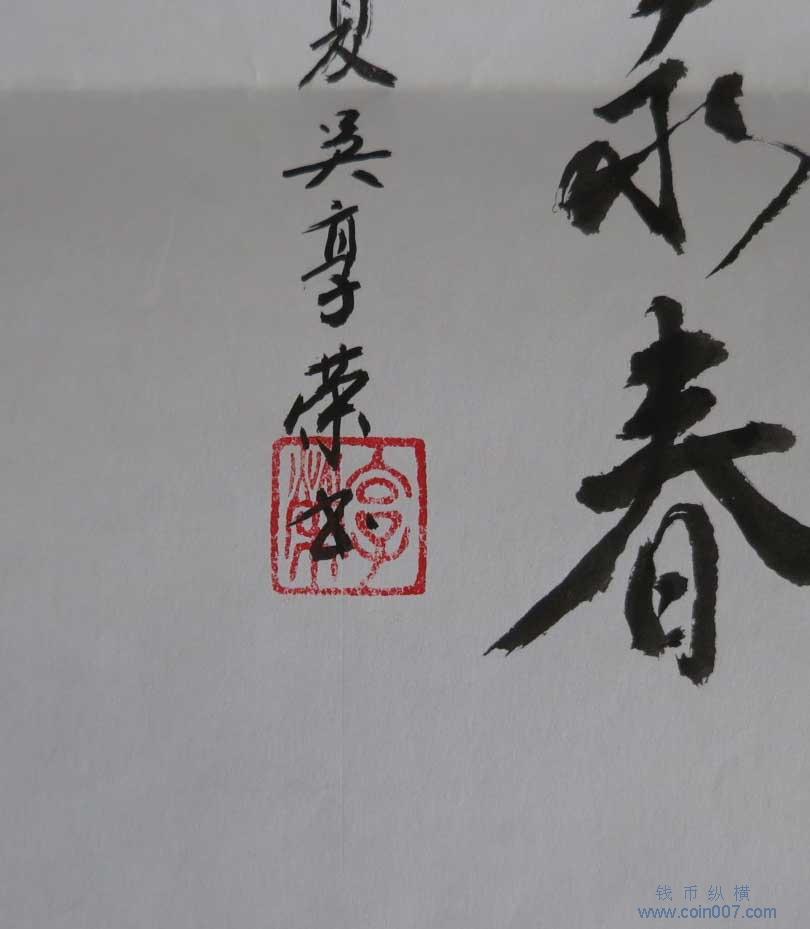 永春
夏吴享荣书
享荣
钱币纵横
www.coin007.com